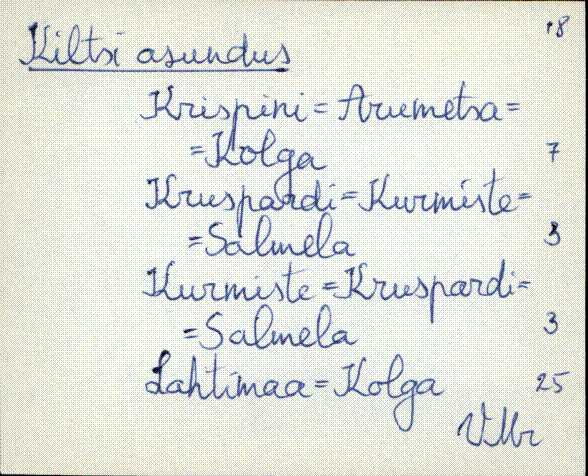 18
Kiltsi asundus
Krispini = Arumetsa =
= Kolga 7
Kruspardi = Kurmiste =
= Salmela 3
Kurmiste = Kruspardi =
= Salmela 3
Lahtimaa = Kolga 25
VMr